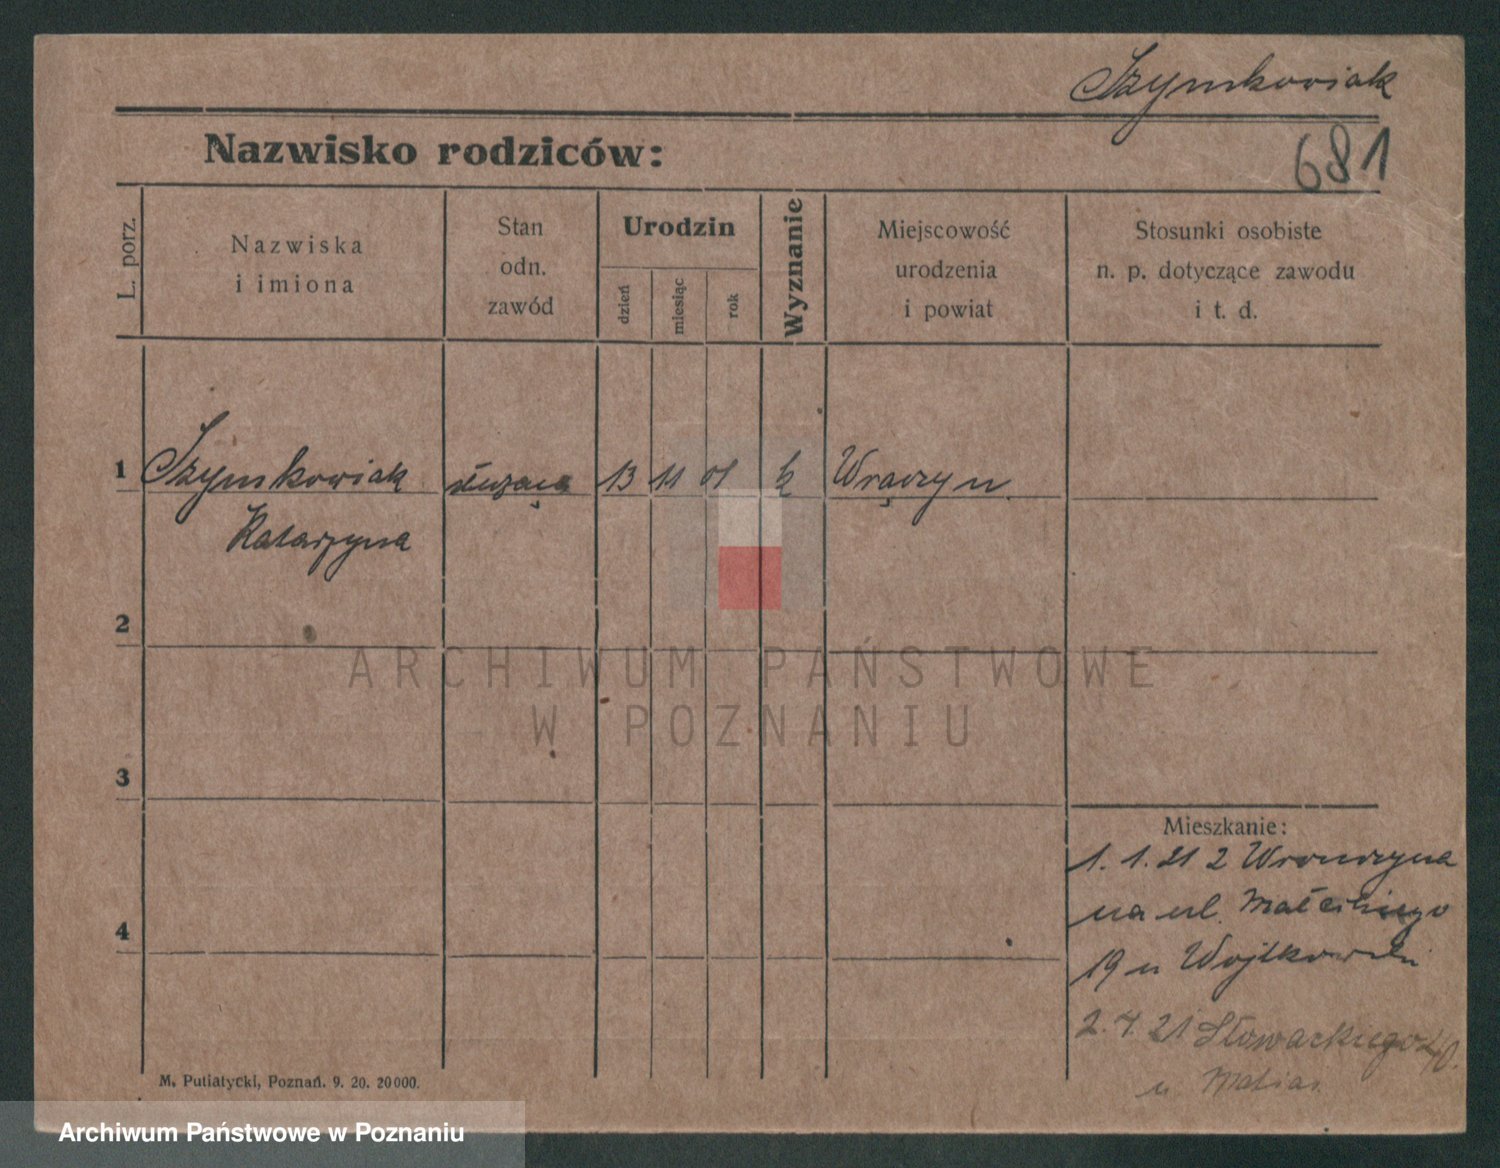 Szymkowiak
681
Nazwisko rodziców:
L. porz.
Nazwiska
i imiona
Stan
odn.
zawód
Urodzin
dzień
miesiąc
rok
Wyznanie
Miejscowość
urodzenia
i powiat
Stosunki osobiste
n. p. dotyczące zawodu
i t. d.
1 Szymkowiak służąca 13 11 01 k Wrączyn.
Katarzyna
2
3
4
Mieszkanie:
1. 1. 21 z Wronczyna
na ul. Małeckiego
19 u Wojtkowski
2. 4. 21 Słowackiego 40.
u
M. Putiatycki, Poznań. 9. 20. 20000.
ARCHIWUM PAŃSTWOWE
W POZNANIU
Archiwum Państwowe w Poznaniu